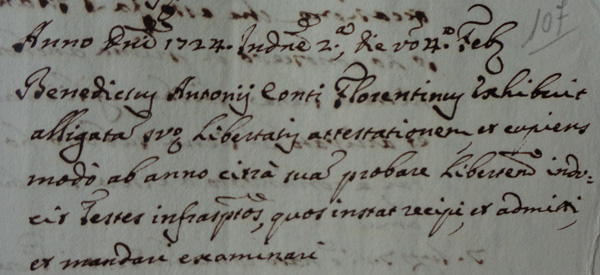 107
Anno Dnī 1724. Indne 2ª, die vō 4ª Feb
Benedictus Antonij Conti Florentinus exhibuit
alligatā suę libertatis attestationem, et cupiens
modò ab anno circà suā probare Libertēm indu-
cit Testes infrasptos, quos instat recipi, et admitti,
et mandari examinari